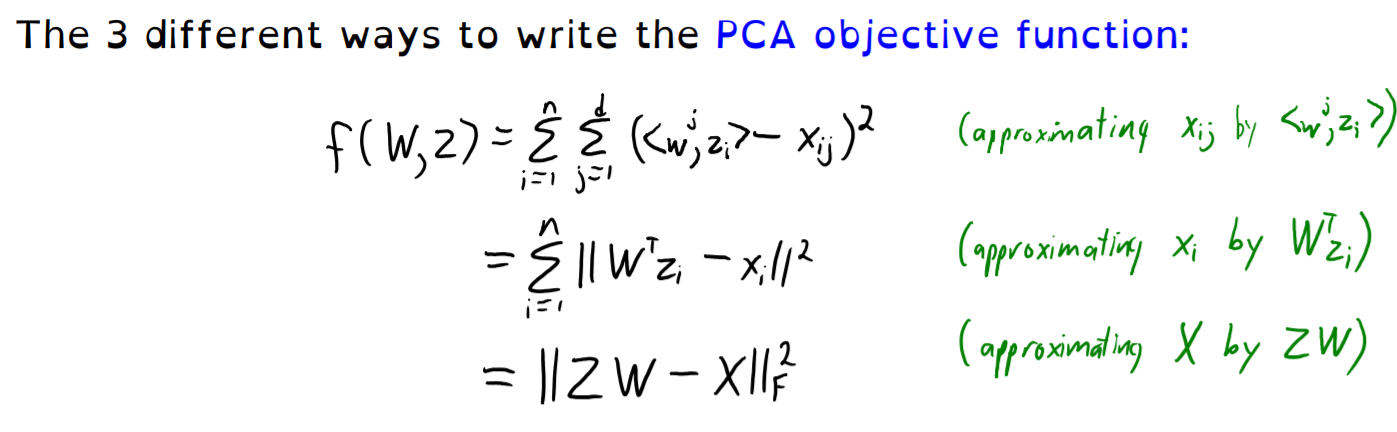 The 3 different ways to write the PCA objective function:
f(W,Z) = Σⁿᵢ₌₁ Σᵈⱼ₌₁ (<wʲ,zᵢ> − xᵢⱼ)² (approximating xᵢⱼ by <wʲ,zᵢ>)
= Σⁿᵢ₌₁ ||Wᵀzᵢ − xᵢ||² (approximating xᵢ by Wᵀzᵢ)
= ||ZW − X||²_F (approximating X by ZW)